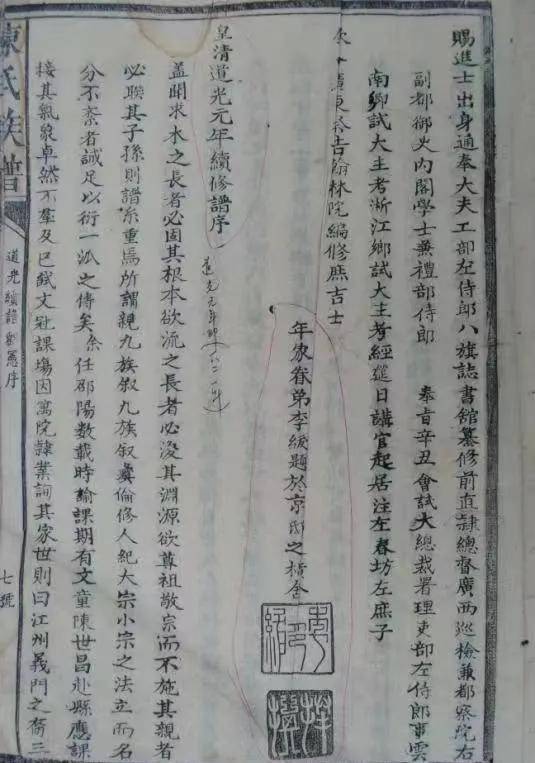 賜進士出身通奉大夫工部左侍郎八旗誌書館纂修前直隸總督廣西巡撿兼都察院右
副都御史内閣學士兼禮部侍郎　奉旨辛丑會試大總裁署理吏部左侍郎事雲
南鄉試大主考浙江鄉試大主考經筵日講官起居注左春坊左庶子
吉翰林院編修庶吉士
年家眷弟李紱題於京邸之
皇清道光元年續修譜序
道光元年
蓋聞求木之長者必固其根本欲流之長者必浚其淵源欲尊祖敬宗而不施其親者
必聯其子孫則譜系重焉所謂親九族叙九族叙彝倫修人紀大宗小宗之法立而名
分不紊者誠足以衍一派之傳矣余任邵陽數載時諭課期有文童陳世昌赴縣應課
接其氣象卓然不羣及已試文並課塲因寓院隸業詢其家世則曰江州義門之裔三
陳氏族譜
道光續譜劉憲序
七號